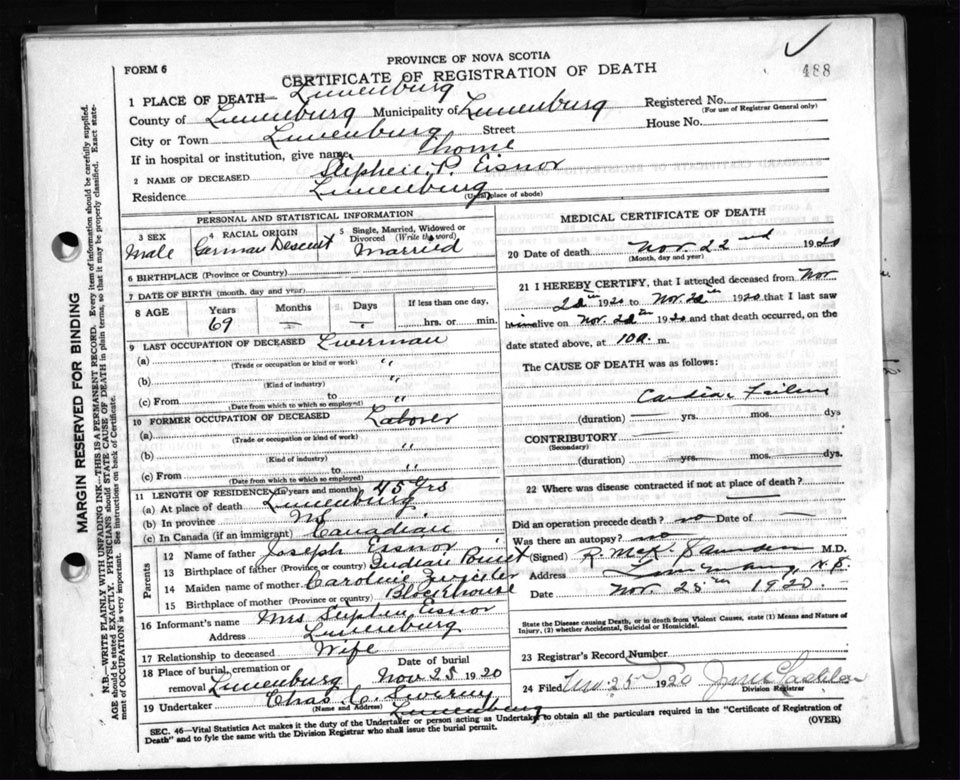 FORM 6
PROVINCE OF NOVA SCOTIA
CERTIFICATE OF REGISTRATION OF DEATH
488
1 PLACE OF DEATH— Lunenburg
County of Lunenburg Municipality of Lunenburg Registered No.
(For use of Registrar General only)
City or Town Lunenburg Street House No.
If in hospital or institution, give name home
2 NAME OF DECEASED Stephen P. Eisnor
Residence Lunenburg
(Usual place of abode)
MARGIN RESERVED FOR BINDING
N.B.—WRITE PLAINLY WITH UNFADING INK—THIS IS A PERMANENT RECORD. Every item of information should be carefully supplied.
AGE should be stated EXACTLY. PHYSICIANS should STATE CAUSE OF DEATH in plain terms, so that it may be properly classified. Exact state-
ment of OCCUPATION is very important. See instructions on back of Certificate.
PERSONAL AND STATISTICAL INFORMATION
3 SEX Male
4 RACIAL ORIGIN German Descent
5 Single, Married, Widowed or Divorced (Write the word) Married
6 BIRTHPLACE (Province or Country)
7 DATE OF BIRTH (month, day and year)
8 AGE Years 69 Months — Days — If less than one day, hrs. or min.
9 LAST OCCUPATION OF DECEASED
(a) " (Trade or occupation or kind or work)
(b) " (Kind of industry)
(c) From to (Date from which to which so employed)
10 FORMER OCCUPATION OF DECEASED Laborer
(a) " (Trade or occupation or kind of work)
(b) " (Kind of industry)
(c) From to " (Date from which to which so employed)
11 LENGTH OF RESIDENCE (in years and months) 45 Yrs
(a) At place of death Lunenburg
(b) In province NS
(c) In Canada (if an immigrant) Canadian
Parents
12 Name of father Joseph Eisnor
13 Birthplace of father (Province or country) Indian Point
14 Maiden name of mother Caroline Zwicker
15 Birthplace of mother (Province or country) Blockhouse
16 Informant's name Mrs Stephen Eisnor
Address Lunenburg
17 Relationship to deceased Wife
18 Place of burial, cremation or removal Lunenburg Date of burial Nov 25 1920
19 Undertaker Chas C.
(Name and Address) Lunenburg
MEDICAL CERTIFICATE OF DEATH
20 Date of death Nov. 22nd 1920
(Month, day and year)
21 I HEREBY CERTIFY, that I attended deceased from Nov
1920 to Nov 1920 that I last saw
him alive on Nov. 1920 and that death occurred, on the
date stated above, at 10 a. m.
The CAUSE OF DEATH was as follows:
Cardiac
(duration) — yrs. mos. dys
CONTRIBUTORY —
(Secondary)
(duration) — yrs. — mos. — dys.
22 Where was disease contracted if not at place of death?
—
Did an operation precede death? no Date of —
Was there an autopsy? no
(Signed) R. McK. Saunders M.D.
Address
Date Nov. 25th 1920
State the Disease causing Death, or in death from Violent Causes, state (1) Means and Nature of
Injury, (2) whether Accidental, Suicidal or Homicidal.
23 Registrar's Record Number
24 Filed Nov. 25 1920
Division Registrar
SEC. 46—Vital Statistics Act makes it the duty of the Undertaker or person acting as Undertaker to obtain all the particulars required in the "Certificate of Registration of
Death" and to fyle the same with the Division Registrar who shall issue the burial permit.
(OVER)